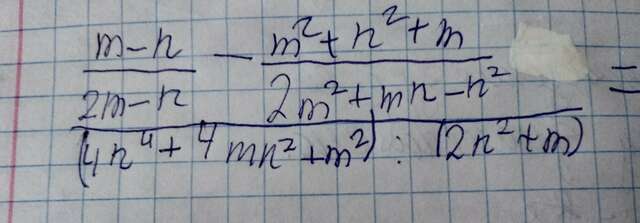 m-n/2m-n - m²+n²+m/2m²+mn-n² =
(4n⁴+4mn²+m²) : (2n²+m)